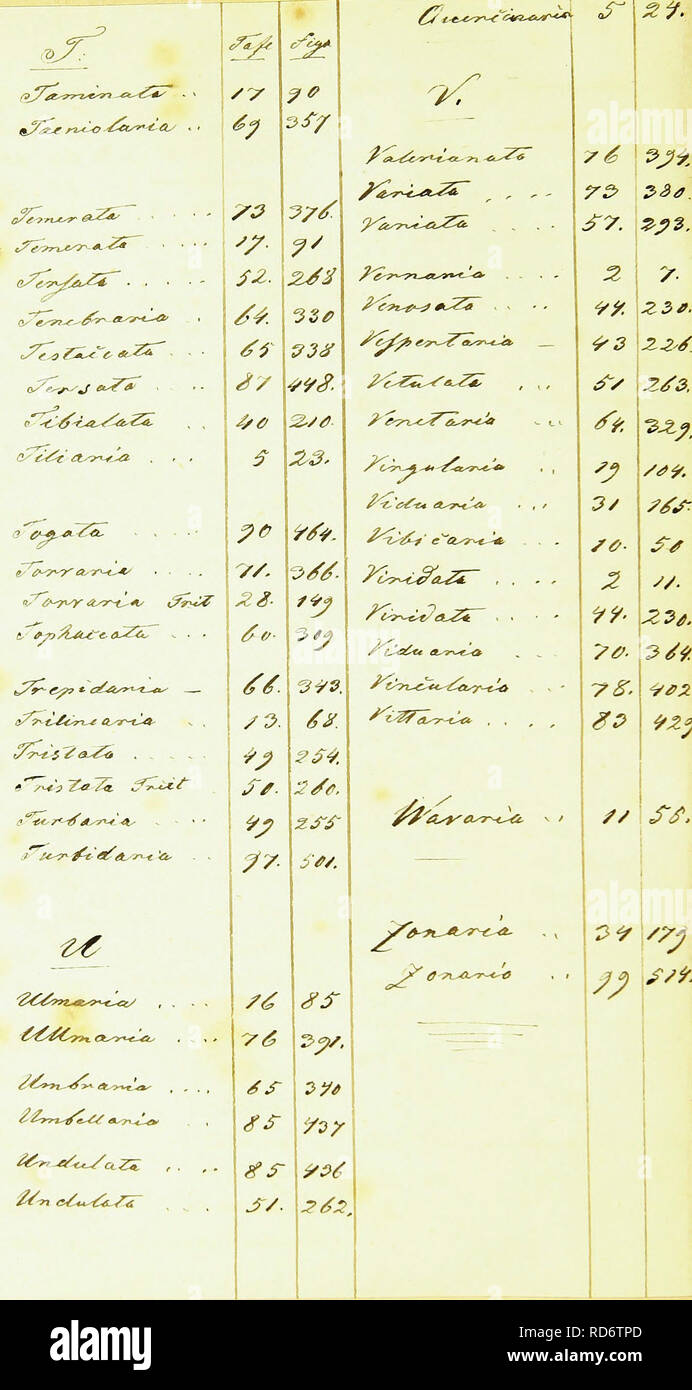 T.
Tafl Figu
Taminata .. 17 90
Taeniolaria .. 69 357
Temerata 73 376.
Temerata 17. 91
Tersata 52. 268
Tenebraria . 64. 330
Testaceata 65 338
Tersata 87 448.
Tibialata 40 210.
Tiliaria . . . 5 23.
Togata 90 464.
Torvaria 71. 366.
Torvaria Treit 28. 149
Tophaceata 60. 309
Trepidaria – 66. 343.
Trilinearia 13. 68.
Tristata 49 254.
Tristata Treit 50. 260.
Turbaria 49 255
Turbidaria 97. 501.
U
Ulmaria 16 85
Ullmaria 76 391.
Umbraria 65 340
Umbellaria 85 437
Undulata 85 436
Undulata 51. 262.
5 24.
V.
Valerianata 76 394.
Variata 73 380.
Variata 57. 293.
Vernaria 2 7.
Venosata 44. 230.
Vespertaria – 43 226.
Vetulata 51 263.
Venetaria 64. 329.
Virgularia 19 104.
Viduaria 31 165.
Vibicaria 10. 50
Viridata 2 11.
Viridata 44. 230.
Viduaria 70. 364.
Vincularia 78. 402
Vittaria 83 429
Wavaria 11 55.
Zonaria 34 179
Zonario 99 514.
alamy
Image ID: RD6TPD
www.alamy.com